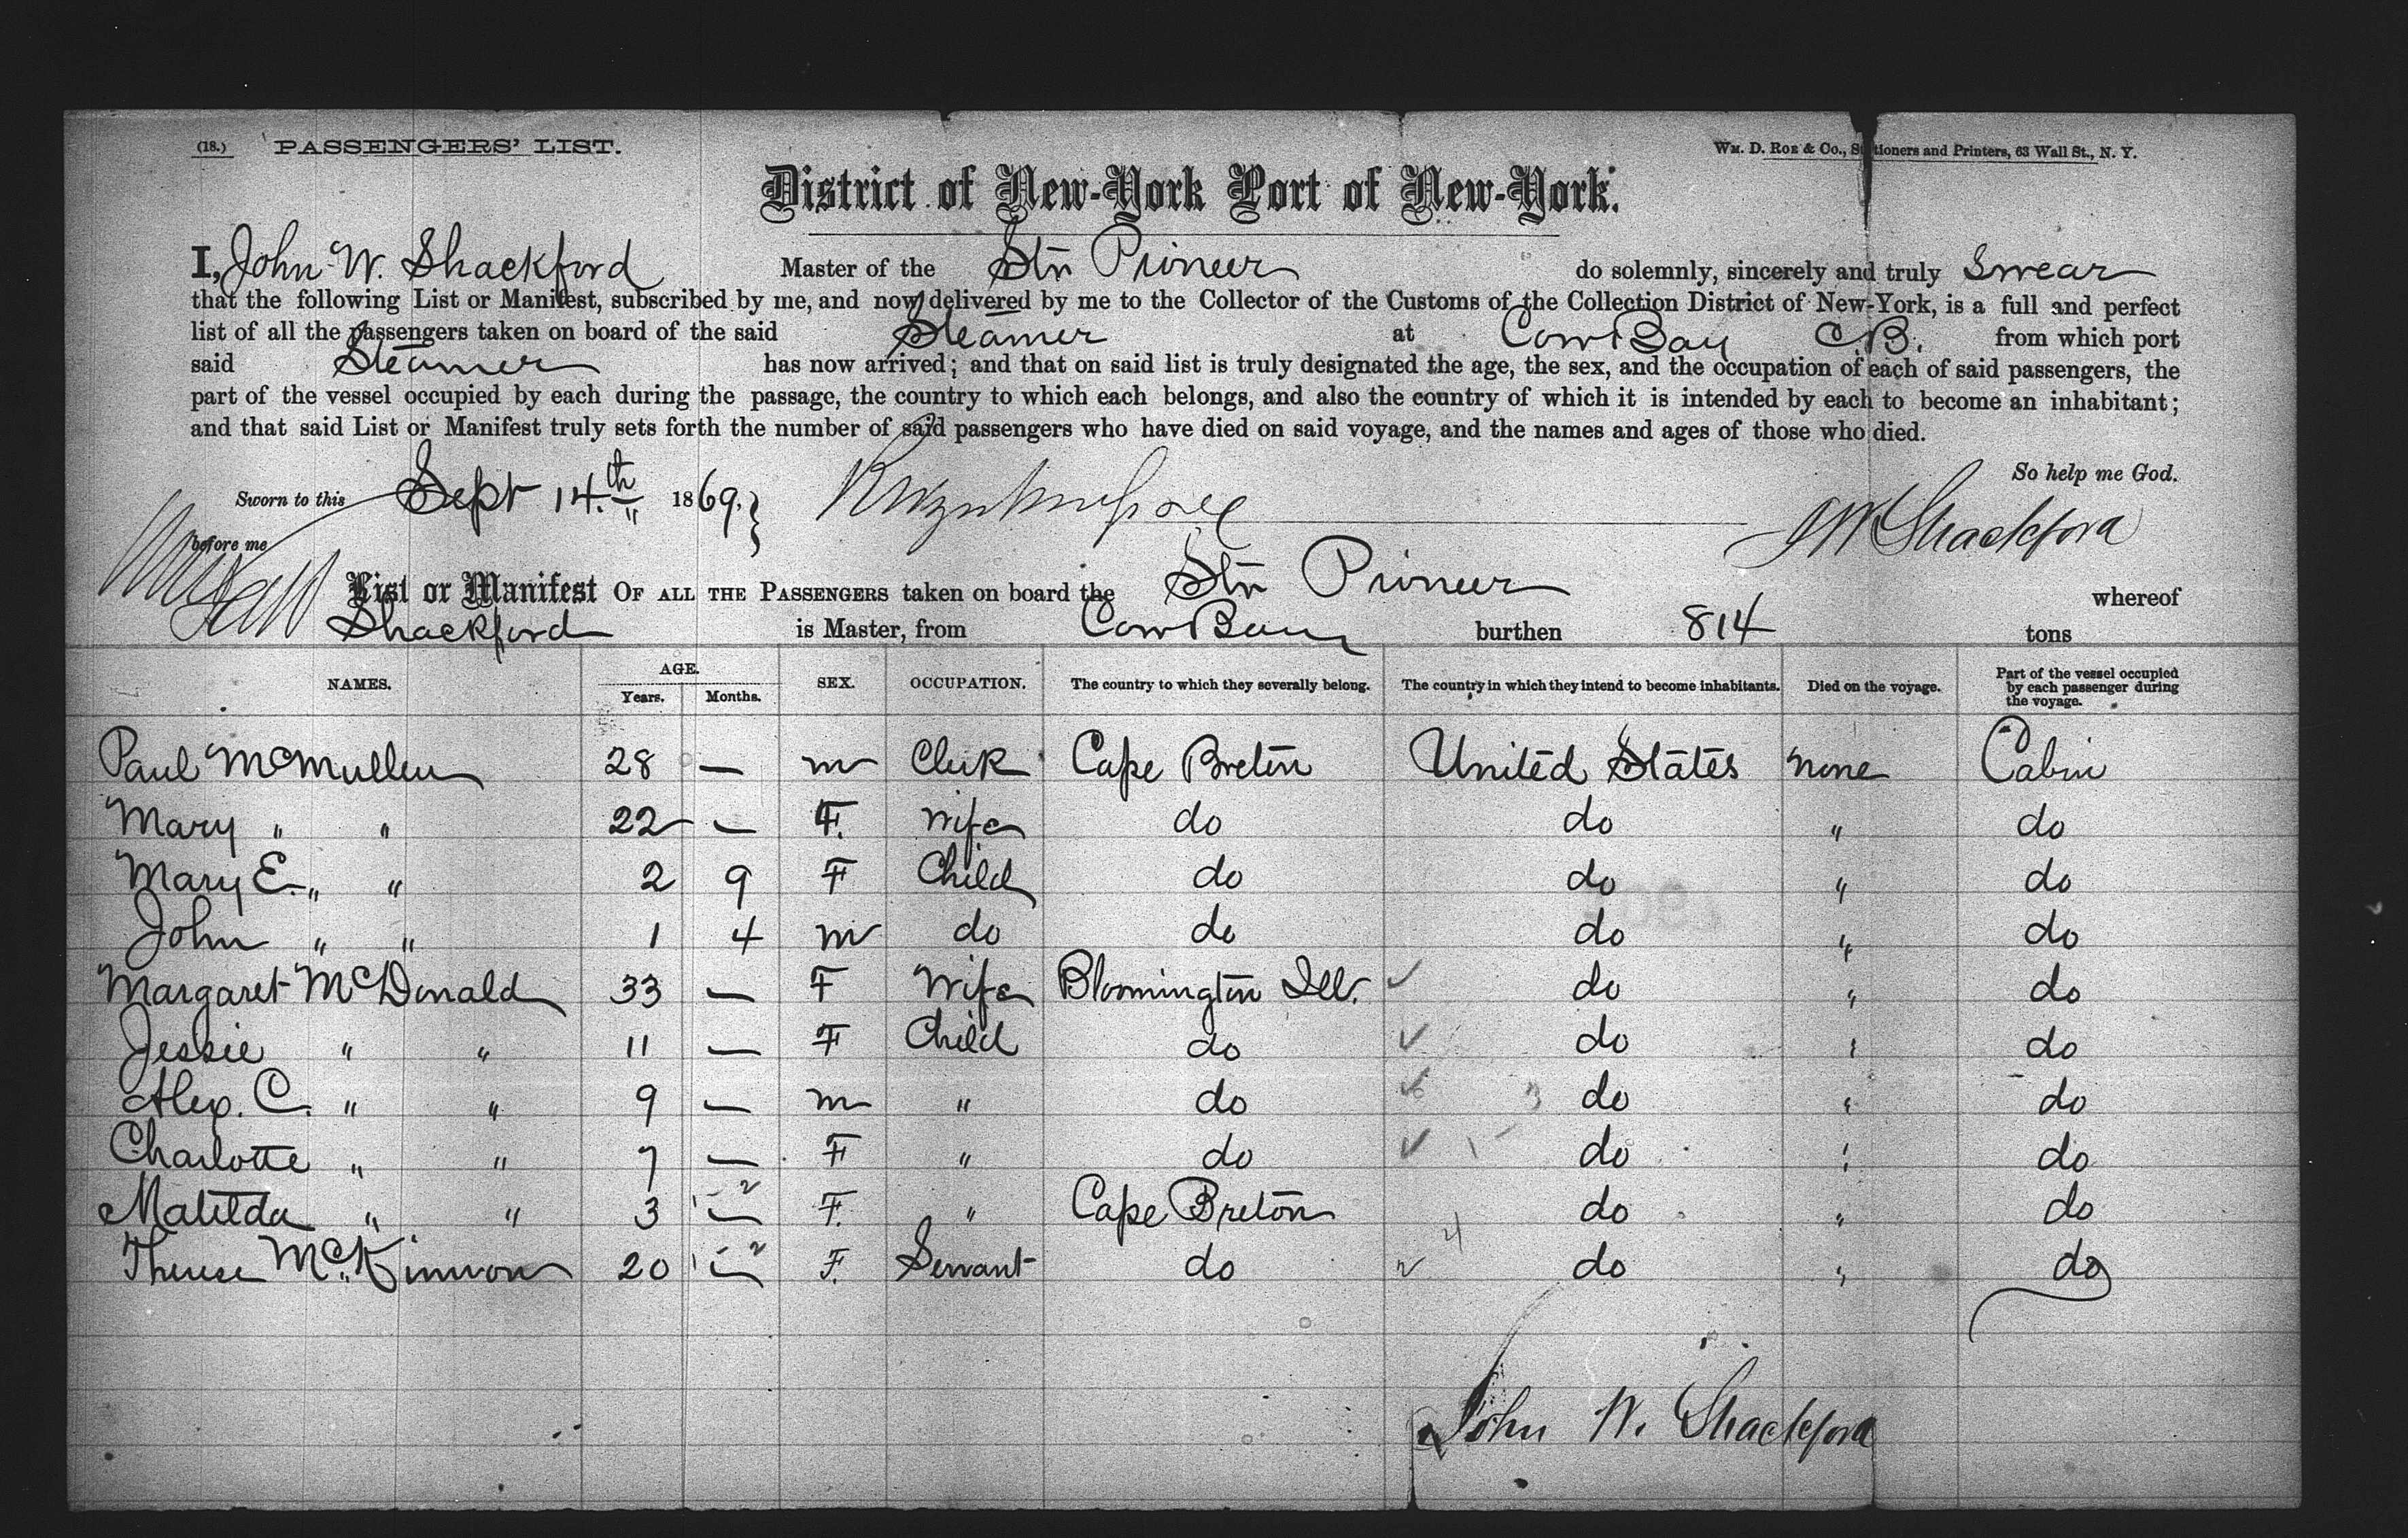 (18.) PASSENGERS' LIST. Wm. D. Roe & Co., Stationers and Printers, 63 Wall St., N. Y.
District of New-York Port of New-York.
I, John W. Shackford Master of the Str Pioneer do solemnly, sincerely and truly Swear
that the following List or Manifest, subscribed by me, and now delivered by me to the Collector of the Customs of the Collection District of New-York, is a full and perfect
list of all the passengers taken on board of the said Steamer at Cow Bay C.B. from which port
said Steamer has now arrived; and that on said list is truly designated the age, the sex, and the occupation of each of said passengers, the
part of the vessel occupied by each during the passage, the country to which each belongs, and also the country of which it is intended by each to become an inhabitant;
and that said List or Manifest truly sets forth the number of said passengers who have died on said voyage, and the names and ages of those who died.
So help me God.
Sworn to this Sept 14.th 1869. } J W Shackford
before me
List or Manifest OF ALL THE PASSENGERS taken on board the Str Pioneer whereof
Shackford is Master, from Cow Bay burthen 814 tons
NAMES. AGE. Years. Months. SEX. OCCUPATION. The country to which they severally belong. The country in which they intend to become inhabitants. Died on the voyage. Part of the vessel occupied by each passenger during the voyage.
Paul McMullen 28 — m Clerk Cape Breton United States none Cabin
Mary " " 22 — F. Wife do do " do
Mary E. " " 2 9 F Child do do " do
John " " 1 4 m do do do " do
Margaret McDonald 33 — F Wife Bloomington Ill. ✓ do " do
Jessie " " 11 — F Child do ✓ do " do
Alex. C. " " 9 — m " do ✓ do " do
Charlotte " " 7 — F " do ✓ do " do
Matilda " " 3 — F. " Cape Breton do " do
Therese McKinnon 20 — F. Servant do do " do
John W. Shackford